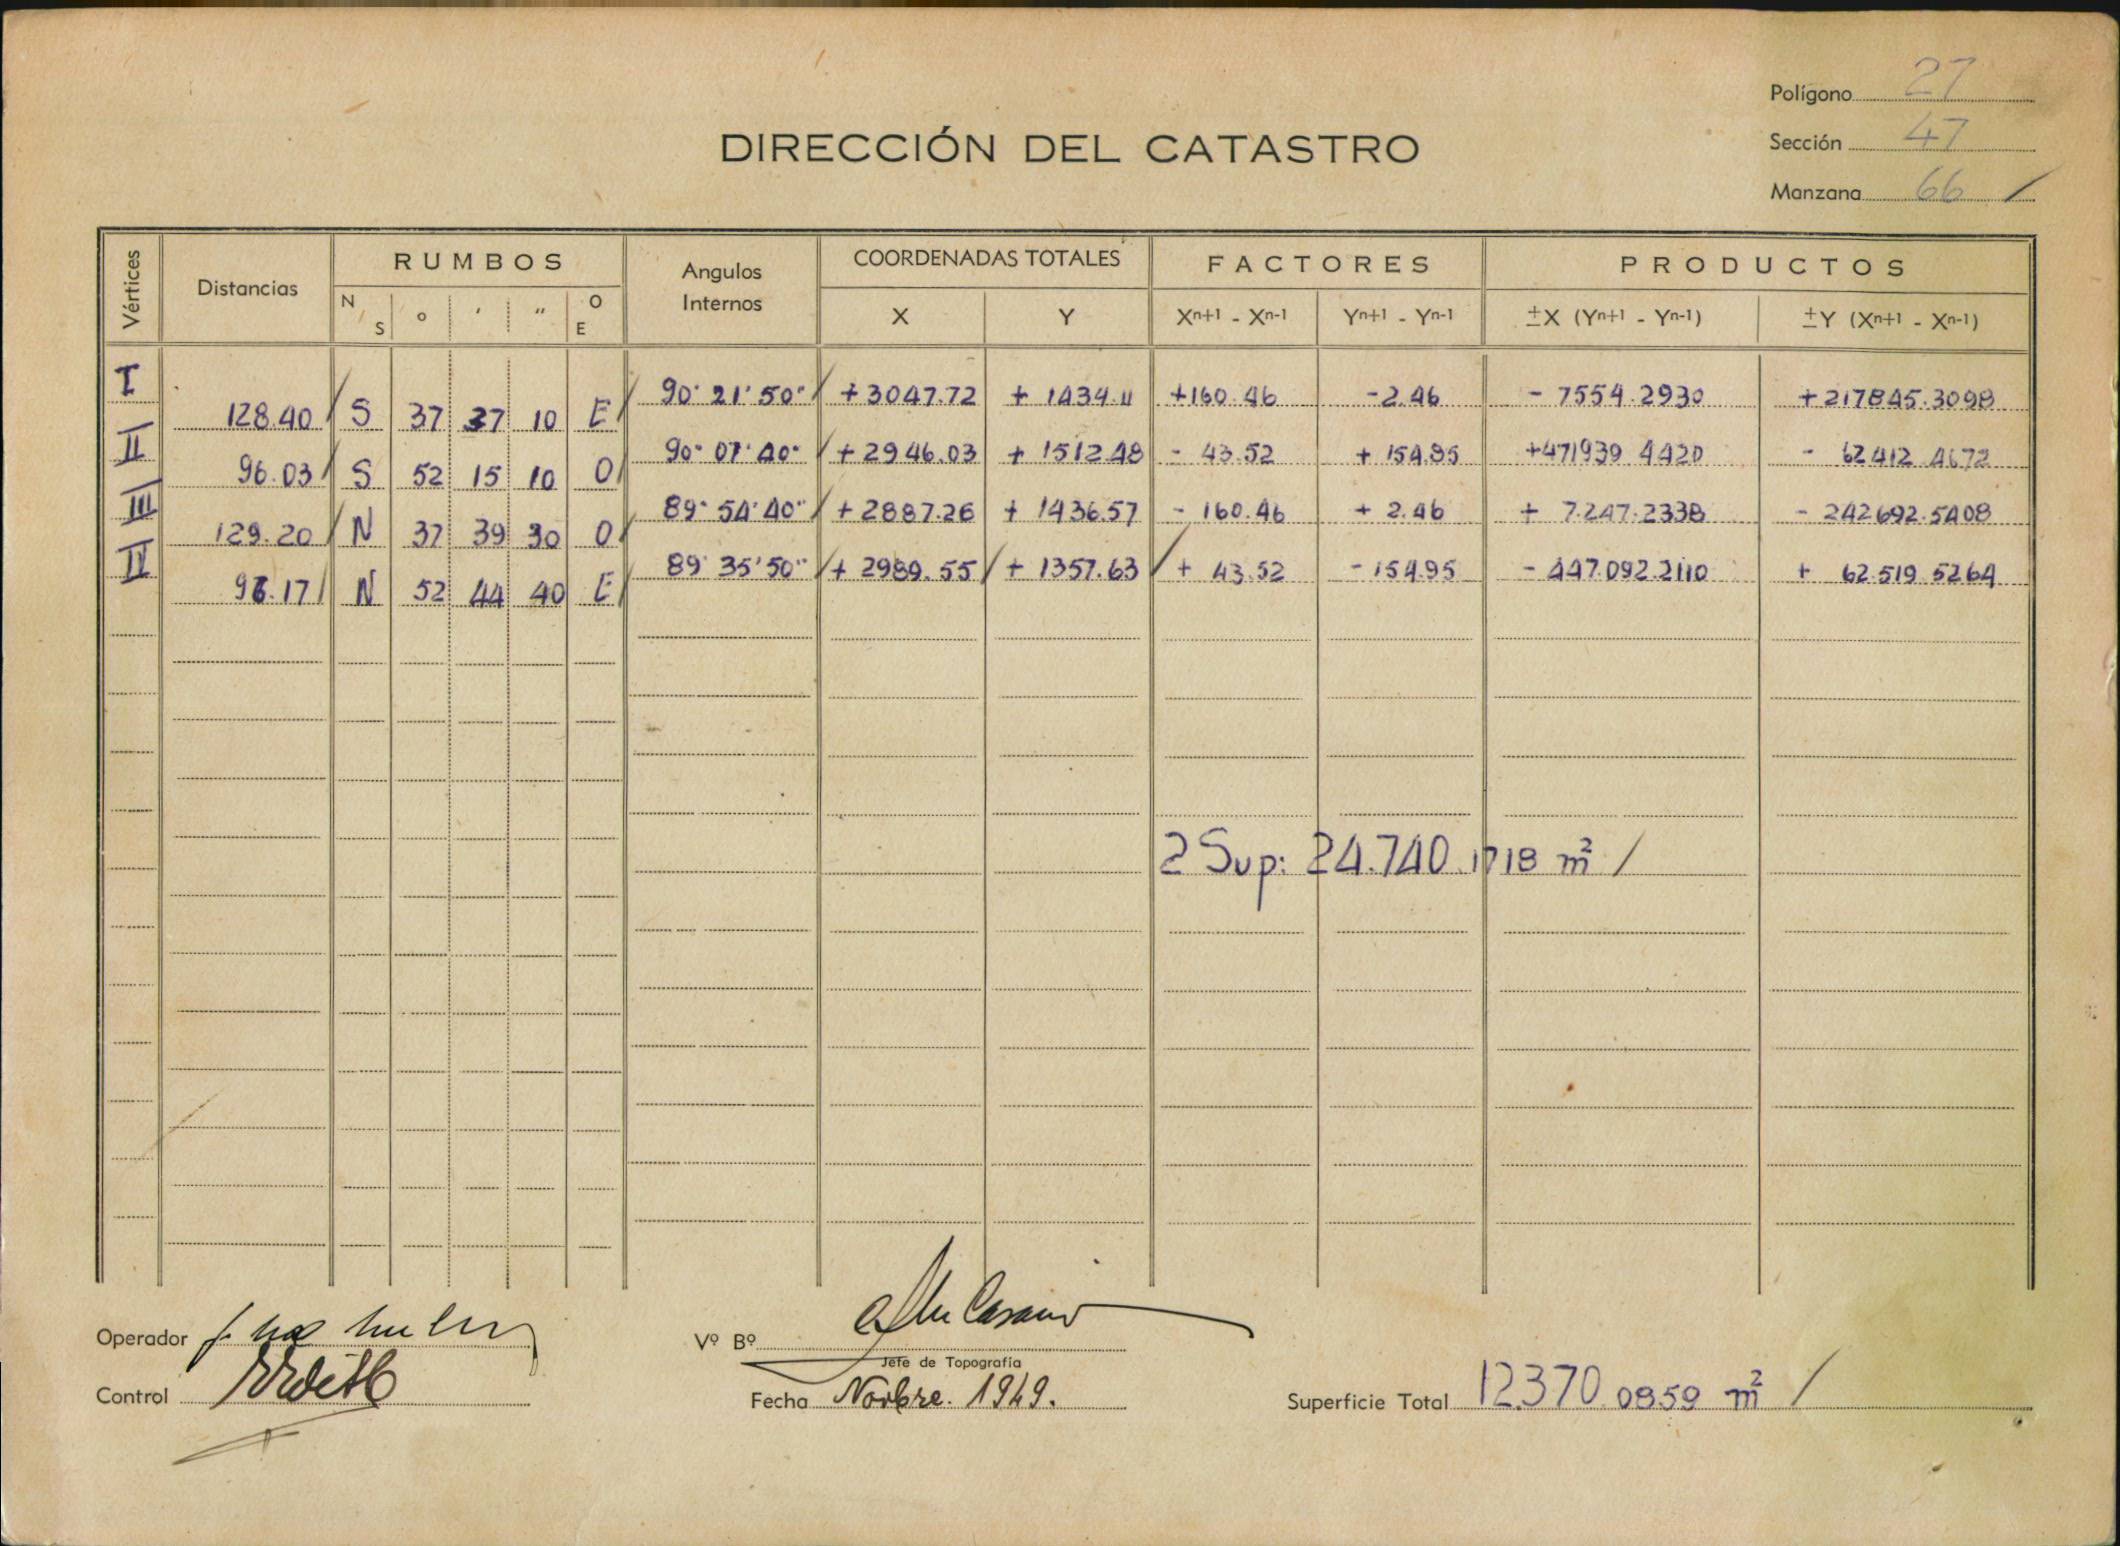 Polígono 27
Sección 47
Manzana 66 /
DIRECCIÓN DEL CATASTRO
Vértices Distancias RUMBOS Angulos Internos COORDENADAS TOTALES FACTORES PRODUCTOS
N/S ° ' " O E X Y Xn+1 - Xn-1 Yn+1 - Yn-1 ±X (Yn+1 - Yn-1) ±Y (Xn+1 - Xn-1)
I 90° 21' 50" + 3047.72 + 1434.11 +160.46 -2.46 - 7354.2930 +217845.3098
128.40 S 37 37 10 E
II 90° 07' 40" + 2946.03 + 1512.48 - 43.52 + 154.85 +471939.4420 - 62412.4672
96.03 S 52 15 10 O
III 89° 54' 40" + 2887.26 + 1436.57 - 160.46 + 2.46 + 7.247.2338 - 242692.5408
129.20 N 37 39 30 O
IV 89° 35' 50" + 2989.55 + 1357.63 + 43.52 - 154.85 - 447.092.2110 + 62.519.5264
96.17 N 52 44 40 E
2 Sup: 24.740.1718 m² /
Operador
Vº Bº
Jefe de Topografía
Control
Fecha Novbre. 1949.
Superficie Total 12.370.0859 m² /